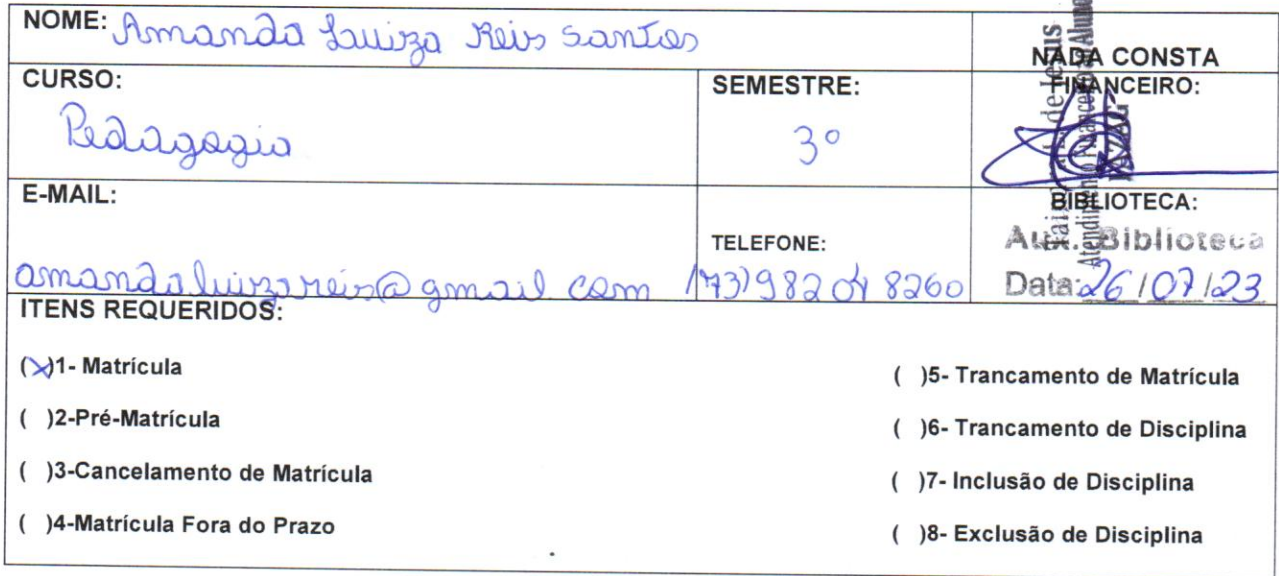 NOME: Amanda Luiza Reis Santos
NADA CONSTA
CURSO:
Pedagogia
SEMESTRE:
3º
FINANCEIRO:
E-MAIL:
amandaluizareis@gmail com
TELEFONE:
(73) 982 8260
BIBLIOTECA:
Aux. Biblioteca
Data: 26/07/23
Atendimento Financeiro
de Jesus
ITENS REQUERIDOS:
(X)1- Matrícula
( )2-Pré-Matrícula
( )3-Cancelamento de Matrícula
( )4-Matrícula Fora do Prazo
( )5- Trancamento de Matrícula
( )6- Trancamento de Disciplina
( )7- Inclusão de Disciplina
( )8- Exclusão de Disciplina